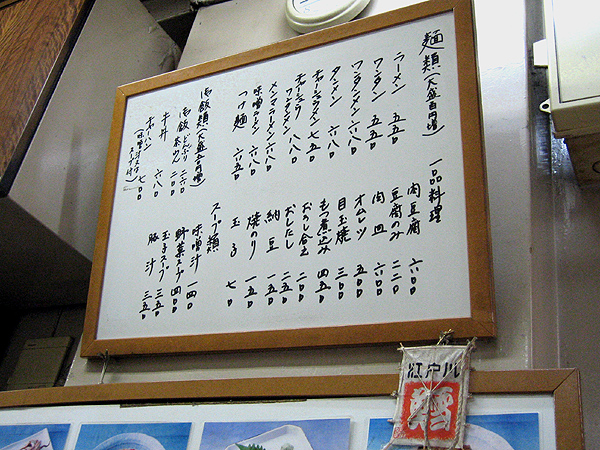 麺類(大盛百円増)
ラーメン 五五〇
ワンタン 五五〇
ワンタンメン 六八〇
タンメン 六八〇
チャーシューメン 七五〇
チャーシュウワンタンメン 八八〇
メンマラーメン 六八〇
味噌ラーメン 六八〇
つけ麺 六五〇
御飯類(大盛五〇円増)
御飯 どんぶり 二六〇
御飯 茶わん 二〇〇
牛丼 六八〇
チャーハン 七〇〇
(味噌汁又はスープ付)
一品料理
肉豆腐 六〇〇
豆腐のみ 二二〇
肉皿 六〇〇
オムレツ 五〇〇
目玉焼 三〇〇
もつ煮込み 四五〇
おのし合え 二〇〇
おしたし 二五〇
納豆 一五〇
焼のり 一五〇
玉子 七〇
スープ類
味噌汁 一四〇
野菜スープ 四〇〇
玉子スープ 三五〇
豚汁 三五〇
江戸川